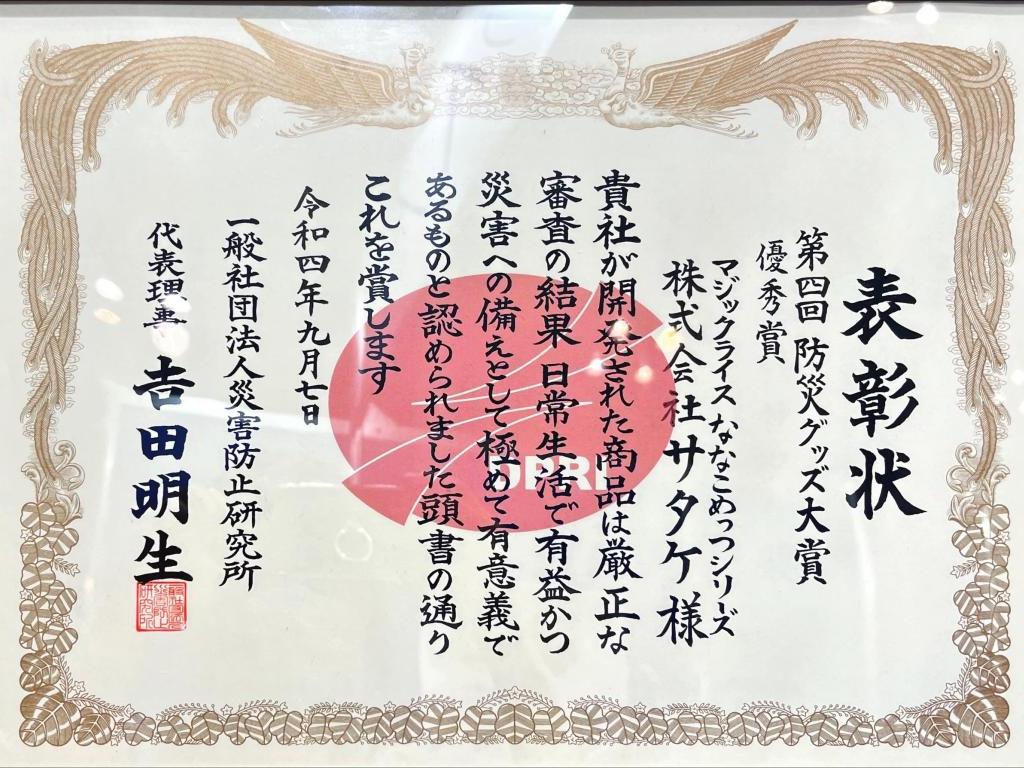 表彰状
第四回 防災グッズ大賞
優秀賞
マジックライス ななこめっつシリーズ
株式会社サタケ様
貴社が開発された商品は厳正な
審査の結果 日常生活で有益かつ
災害への備えとして極めて有意義で
あるものと認められました頭書の通り
これを賞します
令和四年九月七日
一般社団法人災害防止研究所
代表理事 吉田明生